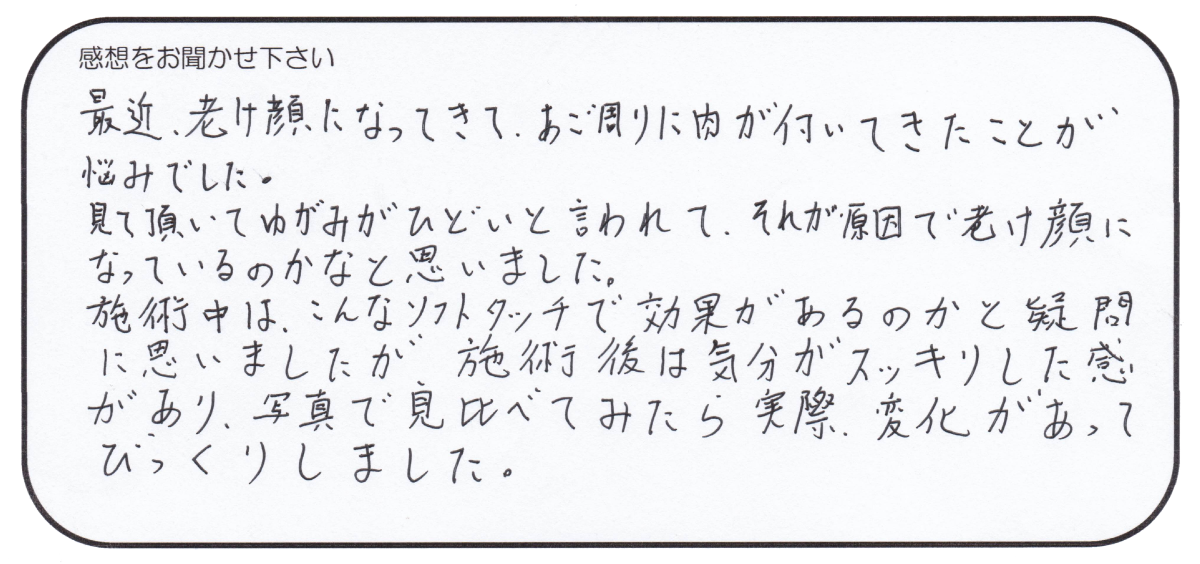 感想をお聞かせ下さい
最近、老け顔になってきて、あご周りに肉が付いてきたことが
悩みでした。
見て頂いてゆがみがひどいと言われて、それが原因で老け顔に
なっているのかなと思いました。
施術中は、こんなソフトタッチで効果があるのかと疑問
に思いましたが 施術後は気分がスッキリした感
があり、写真で見比べてみたら実際、変化があって
びっくりしました。